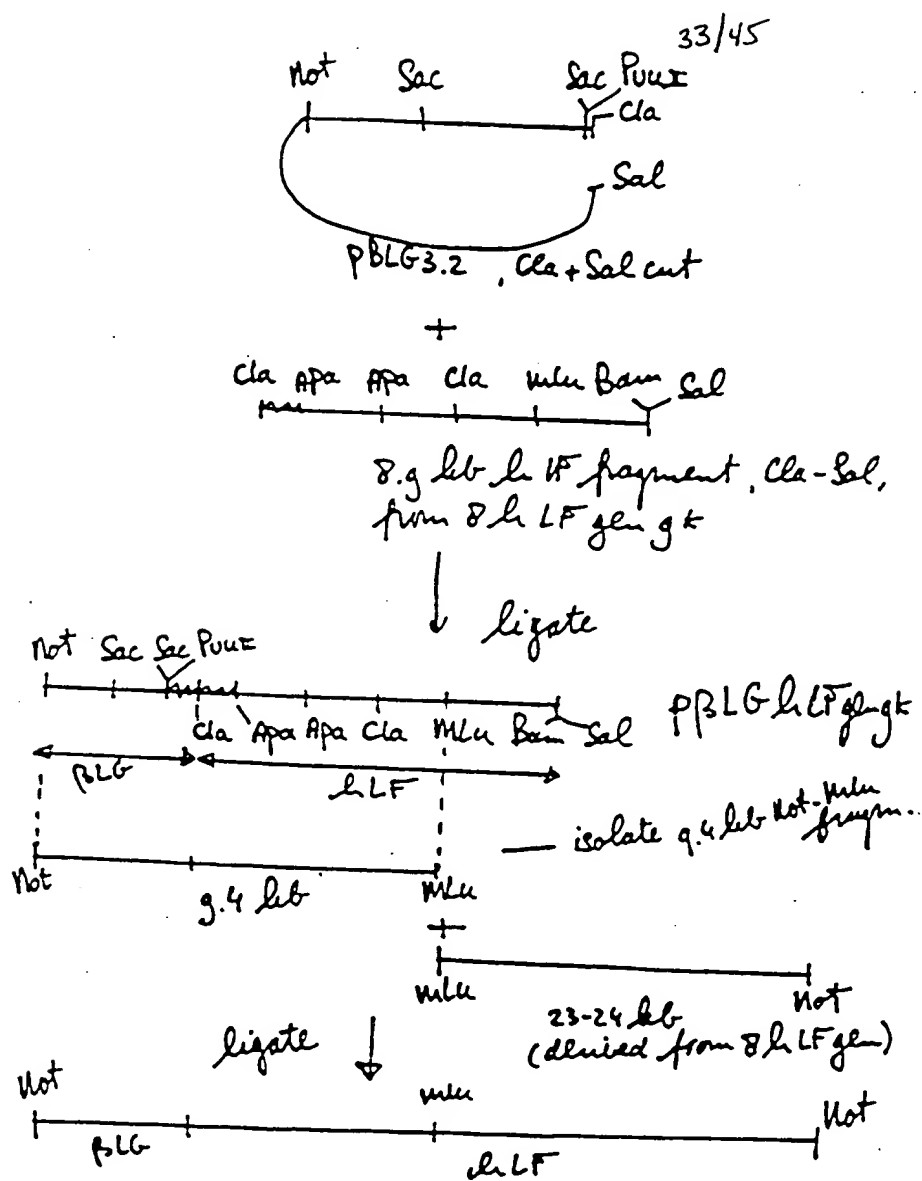 33/45
Not Sac Sac PvuI
Cla
Sal
pBLG3.2, Cla + Sal cut
+
Cla Apa Apa Cla Mlu Bam Sal
8.9 kb hLF fragment, Cla-Sal,
from 8hLFgen 9k
ligate
Not Sac Sac PvuI
Cla Apa Apa Cla Mlu Bam Sal pβLGhLFgen9k
βLG hLF
isolate 9.4 kb Not-Mlu
fragm.
Not Mlu
9.4 kb
+
Mlu Not
23-24 kb
(derived from 8hLFgen)
ligate
Not Mlu Not
βLG hLF